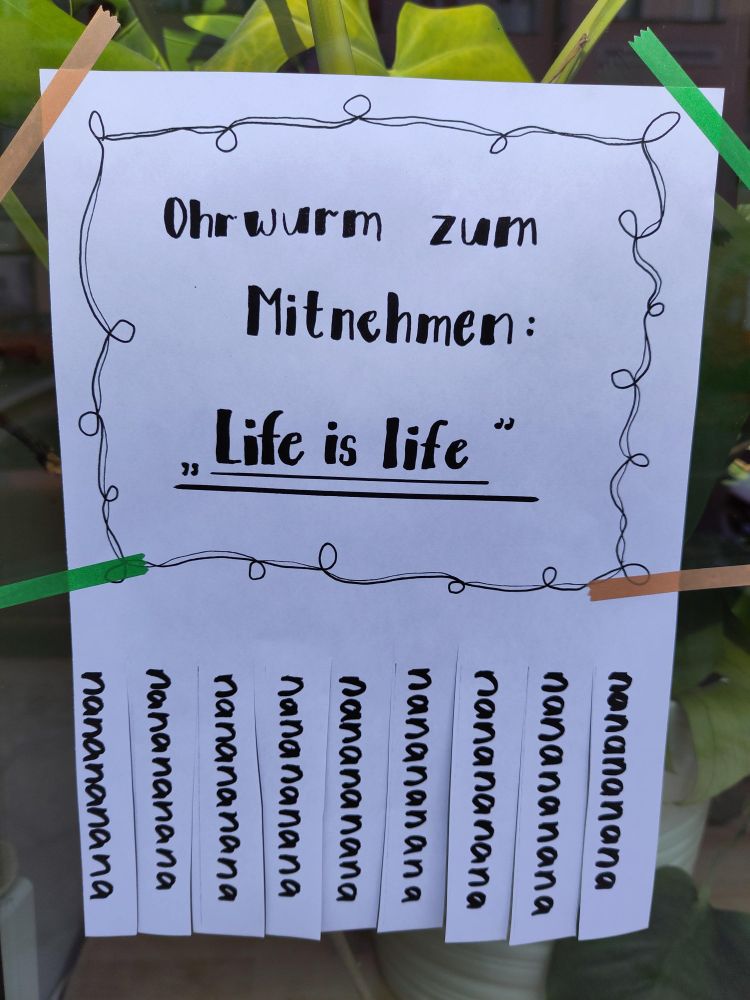 Ohrwurm zum
Mitnehmen:
„Life is life“
nananananana
nananananana
nananananana
nananananana
nananananana
nananananana
nananananana
nananananana
nananananana